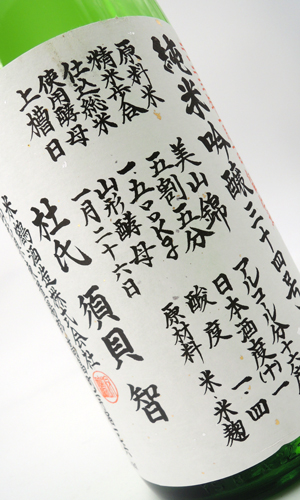 純米吟醸三十四号
アルコール分十六度
日本酒度(十)一
酸度 一・四
原材料 米 米麹
原料米 美山錦
精米歩合 五割五分
仕込総米 一・五〇〇kg
使用酵母 山形酵母
上槽日 一月二十六日
杜氏 須貝 智
米鶴酒造株式会社